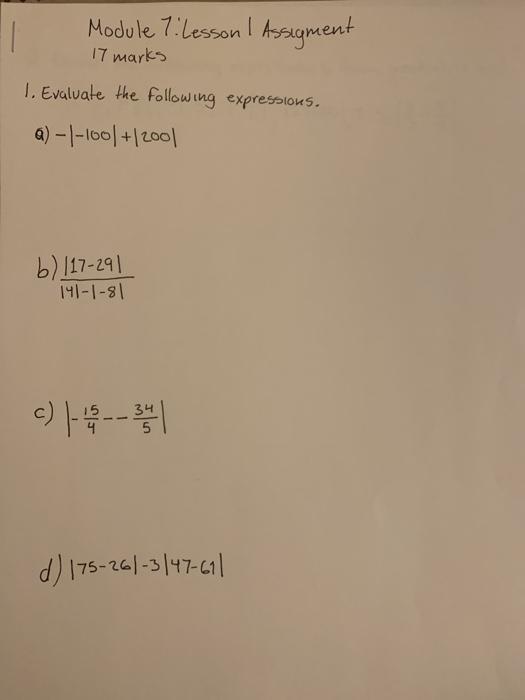 Module 7: Lesson 1 Assigment
17 marks
1. Evaluate the following expressions.
a) -|-100|+|200|
b) |17-29|
|4|-|-8|
c) |-15/4--34/5|
d) |75-26|-3|47-61|